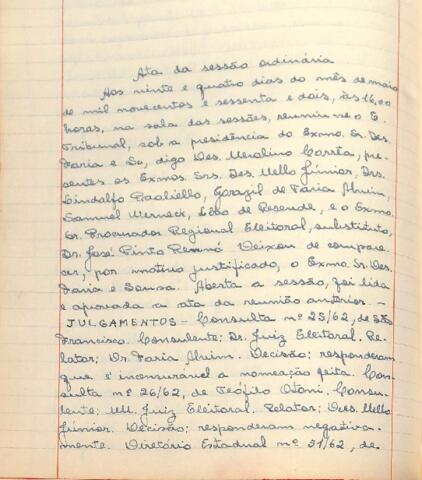 Ata da sessão ordinária
Aos vinte e quatro dias do mês de maio
de mil novecentos e sessenta e dois, às 16,00
horas, na sala das sessões, reuniu-se o E.
Tribunal, sob a presidência do Exmo. Sr. Des.
Faria e So, digo Des. Merolino Corrêa, pre-
sentes os Exmos. Srs. Des. Mello Júnior, Drs.
Lindolfo Paoliello, de Faria Alvim,
Samuel Werneck, de Resende, e o Exmo.
Sr. Procurador Regional Eleitoral, substituto,
Dr. José Pinto Rennó. Deixou de compare-
cer, por motivo justificado, o Exmo. Sr. Des.
Faria e Sousa. Aberta a sessão, foi lida
e aprovada a ata da reunião anterior. -
JULGAMENTOS - Consulta nº 25/62, de São
Francisco. Consulente: Dr. Juiz Eleitoral. Re-
lator: Dr. Faria Alvim. Decisão: responderam
que é incensurável a nomeação feita. Con-
sulta nº 26/62, de Teófilo Otoni. Consu-
lente: MM. Juiz Eleitoral. Relator: Des. Mello
Júnior. Decisão: responderam negativa-
mente. Diretório Estadual nº 31/62, de